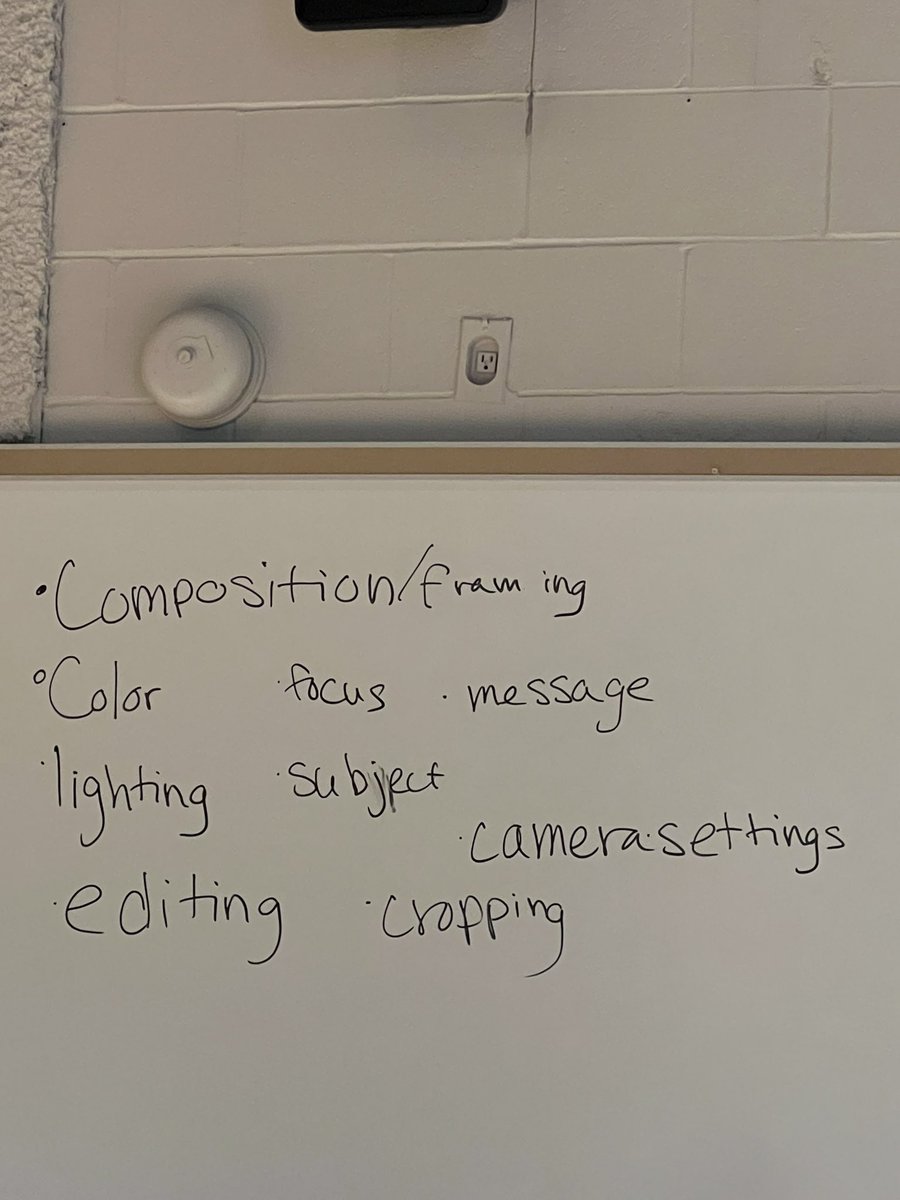 • Composition/framing
° Color · focus · message
· lighting · subject
· camera·settings
· editing · cropping